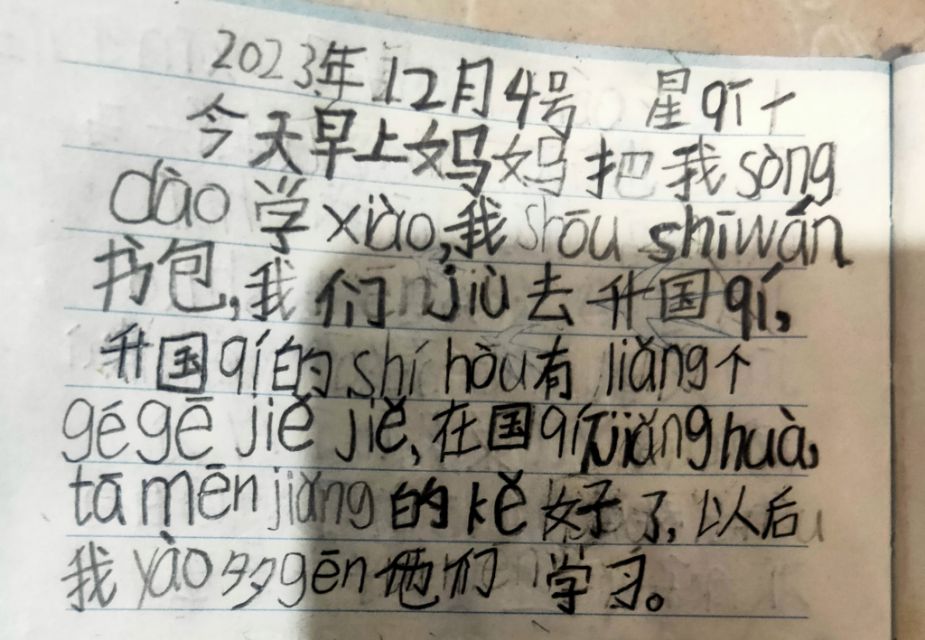 2023年12月4号 星qī一
今天早上妈妈把我sòng
dào学xiào,我shōu shīwán
书包,我们jiù去升国qí,
升国qí的shí hòu有liǎng个
gégē jiě jiě,在国qí下jiǎng huà,
tā mēn jiǎng的kě好了,以后
我yào多gēn他们学习。